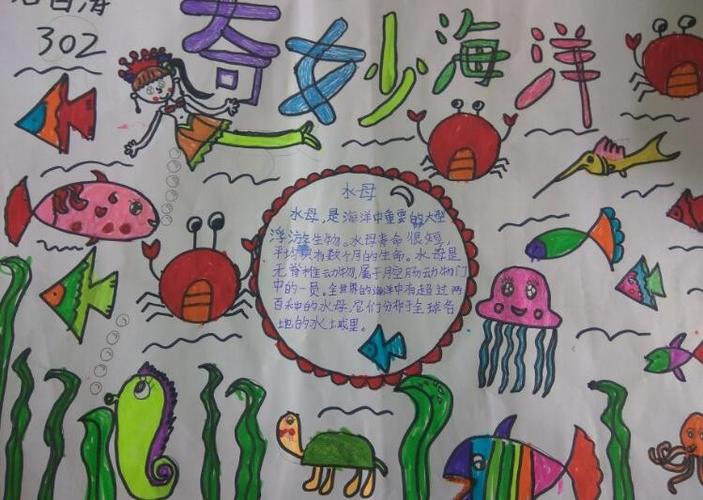 302
奇妙海洋
水母
水母,是海洋中重要的大型
浮游生物。水母寿命很短,
平均只有数个月的生命。水母是
无脊椎动物,属于腔肠动物门
中的一员,全世界的海洋中有超过两
百种的水母,它们分布于全球各
地的水域里。